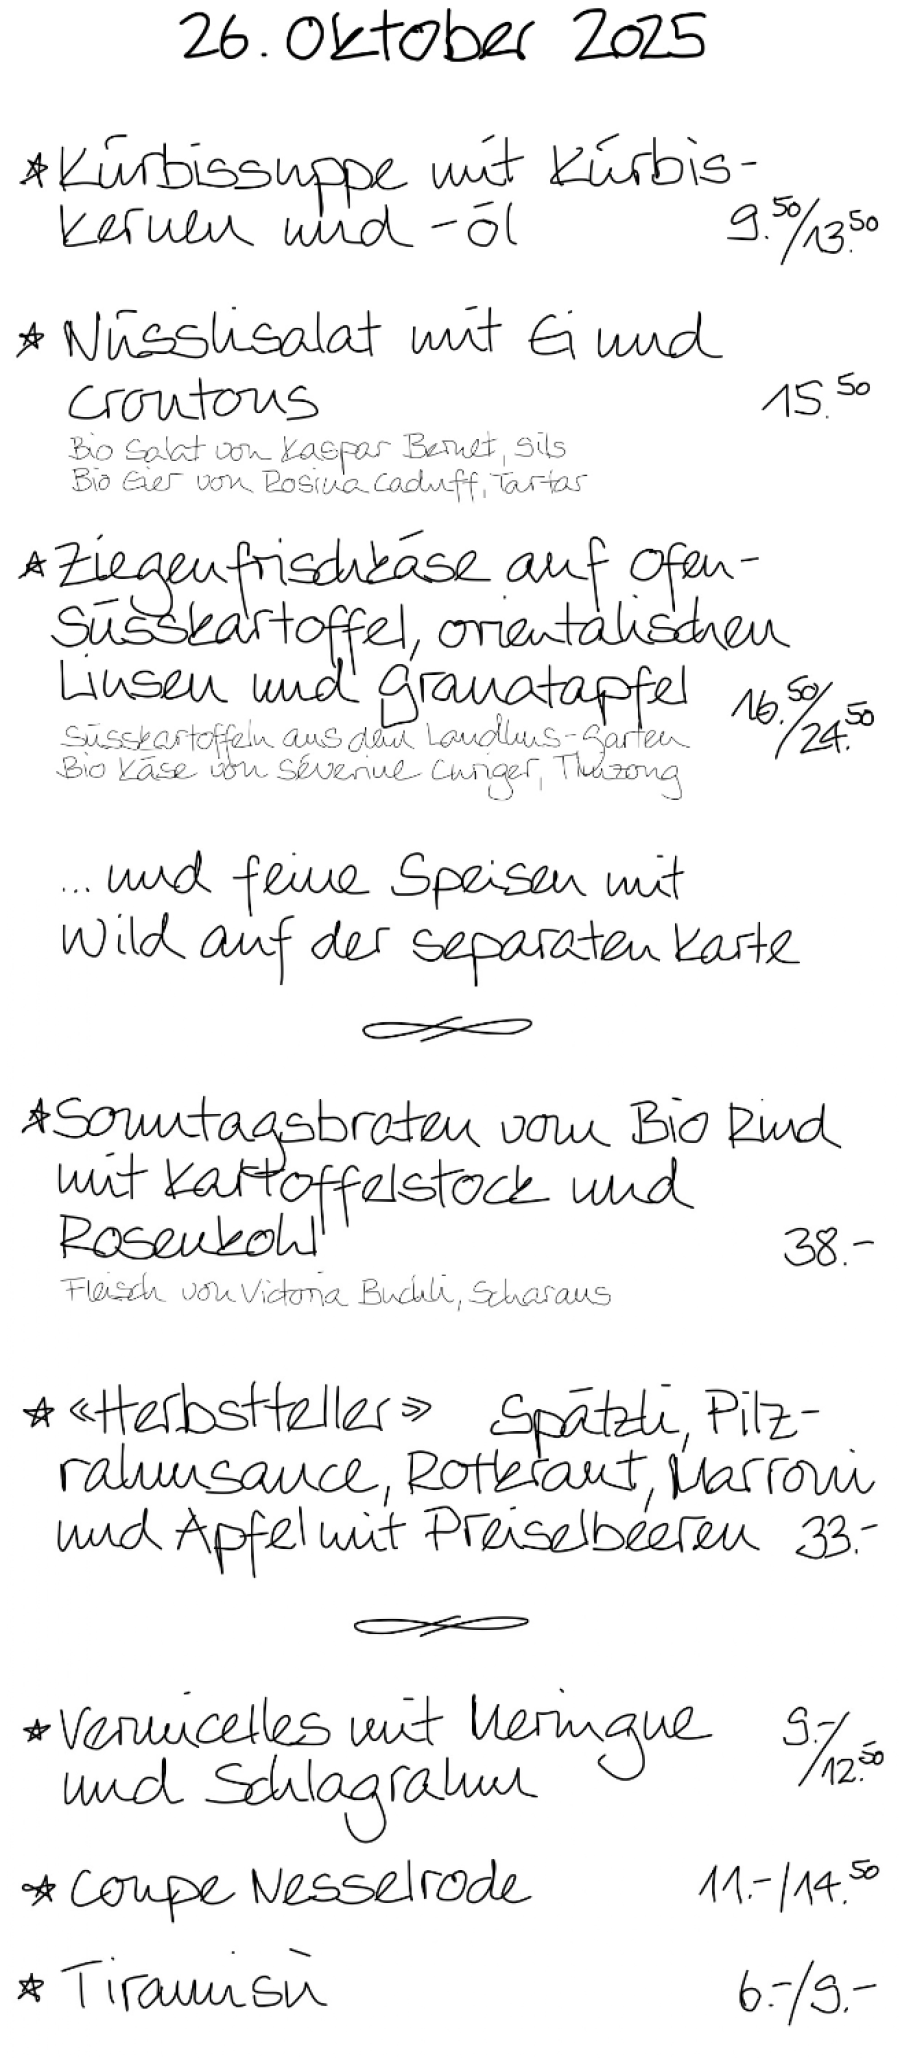 26. Oktober 2025
* Kürbissuppe mit Kürbis-
kernen und -öl 9.50/13.50
* Nüsslisalat mit Ei und
Croutons 15.50
Bio Salat von Kaspar Bernet, Sils
Bio Eier von Rosina Caduff, Tartar
* Ziegenfrischkäse auf Ofen-
Süsskartoffel, orientalischen
Linsen und Granatapfel 16.50/24.50
Süsskartoffeln aus dem Landhus-Garten
Bio Käse von Séverine Curiger,
... und feine Speisen mit
Wild auf der separaten Karte
* Sonntagsbraten vom Bio Rind
mit Kartoffelstock und
Rosenkohl 38.-
Fleisch von Victoria Buchli, Scharans
* «Herbstteller» Spätzli, Pilz-
rahmsauce, Rotkraut, Marroni
und Apfel mit Preiselbeeren 33.-
* Vermicelles mit Meringue 9.-/12.50
und Schlagrahm
* Coupe Nesselrode 11.-/14.50
* Tiramisù 6.-/9.-